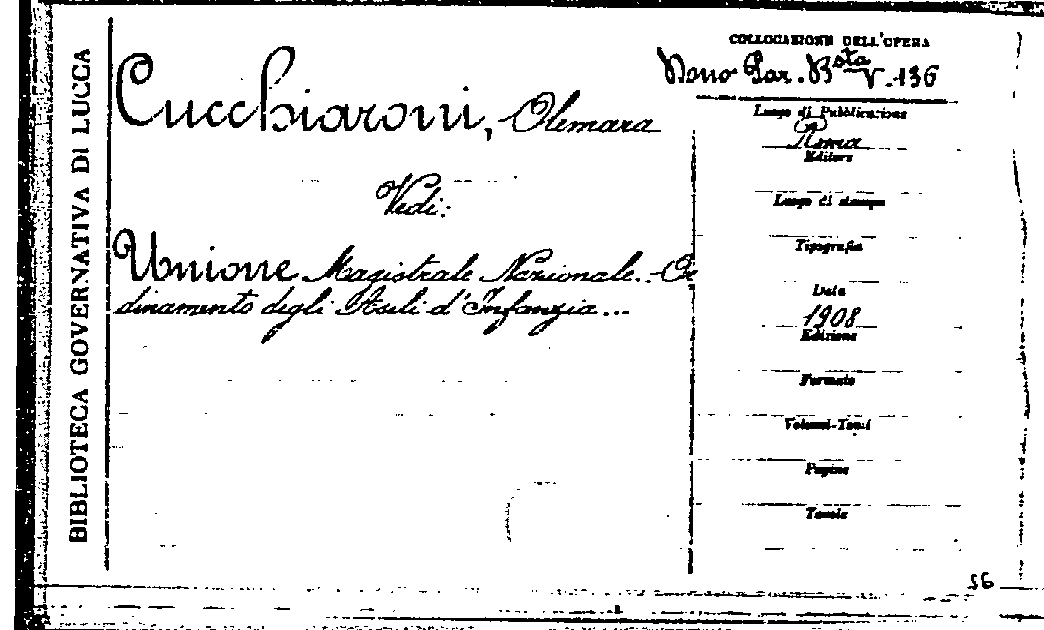 BIBLIOTECA GOVERNATIVA DI LUCCA
Cucchiaroni, Olemara
Vedi:
Unione Magistrale Nazionale.-Or
dinamento degli Asili d'Infanzia...
COLLOCAZIONE DELL'OPERA
Par. Bsta V. 136
Luogo di Pubblicazione
Roma
Editore
Luogo di stampa
Tipografia
Data
1908
Edizione
Formato
Volumi-Tomi
Pagine
Tavole